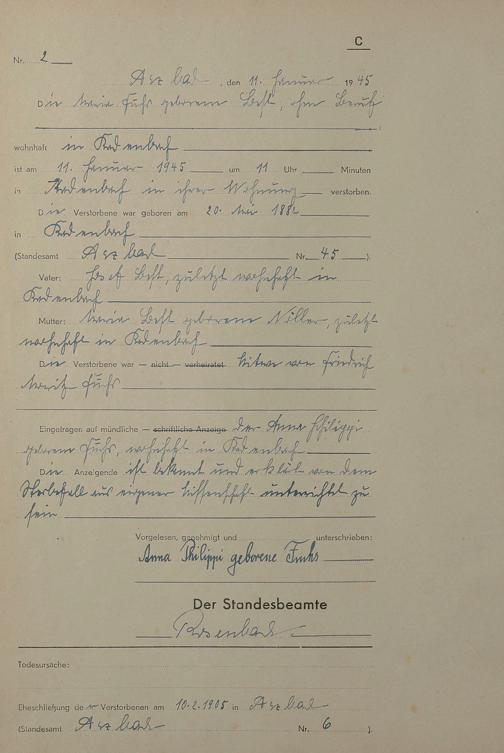 C
Nr. 2
Arzbach, den 11. Januar 1945
Die Maria Fuchs geborene Best, ohne Beruf
wohnhaft in Kadenbach
ist am 11. Januar 1945 um 11 Uhr Minuten
in Kadenbach in ihrer Wohnung verstorben.
Die Verstorbene war geboren am 20. Mai 1882
in Kadenbach
(Standesamt Arzbach Nr. 45 ).
Vater: Josef Best, zuletzt wohnhaft in
Kadenbach
Mutter: Maria Best geborene Miller, zuletzt
wohnhaft in Kadenbach
Die Verstorbene war — nicht — verheiratet Witwe von Friedrich
Moritz Fuchs
Eingetragen auf mündliche — schriftliche Anzeige der Anna Philippi
geborene Fuchs, wohnhaft in Kadenbach
Die Anzeigende ist bekannt und erklärt von dem
Sterbefall aus eigener Wissenschaft unterrichtet zu
sein
Vorgelesen, genehmigt und unterschrieben:
Anna Philippi geborene Fuchs
Der Standesbeamte
Todesursache:
Eheschließung der Verstorbenen am 10.2.1905 in Arzbach
(Standesamt Arzbach Nr. 6 ).